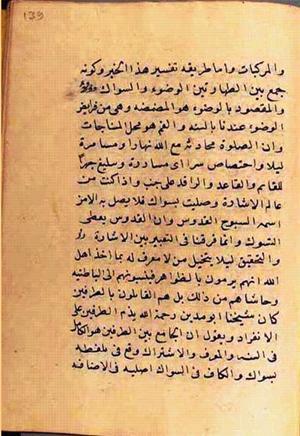 139
والمركبات واما طريقه تفسير هذا الخبر وكونه
جمع بين الطهارتين الوضوء والسواك
والمقصود بالوضوء هو المضمضه وهى من فرايض
الوضوء عندنا بالسنه والفم هو محل المناجات
وان الصلوة محادثة مع الله نهارا ومسامرة
ليلا واختصاص سرا اى مساررة وتبليغ جهرا
للقايم والقاعد والراقد على جنب واذا كنت من
عالم الاشارة وصليت بسواك فلا يصل به الامر
اسمه السبوح القدوس وان القدوس يعطى
السواك وانما فرقنا فى التعبير بين الاشارة
والتحقيق ليلا يتخيل من لا معرفه له بما اخذ اهل
الله انهم يرمون بالظواهر فينسبونهم الى الباطنيه
وحاشاهم من ذلك بل هم القائلون بالطرفين
كان شيخنا ابو مدين رحمة الله يذم الطرفين على
الانفراد ويقول ان الجامع بين الطرفين هو الكامل
فى السنه والمعرفه والاشتراك وقع فى ملفظه
بسواك والكاف فى السواك اصليه فى الاضافه